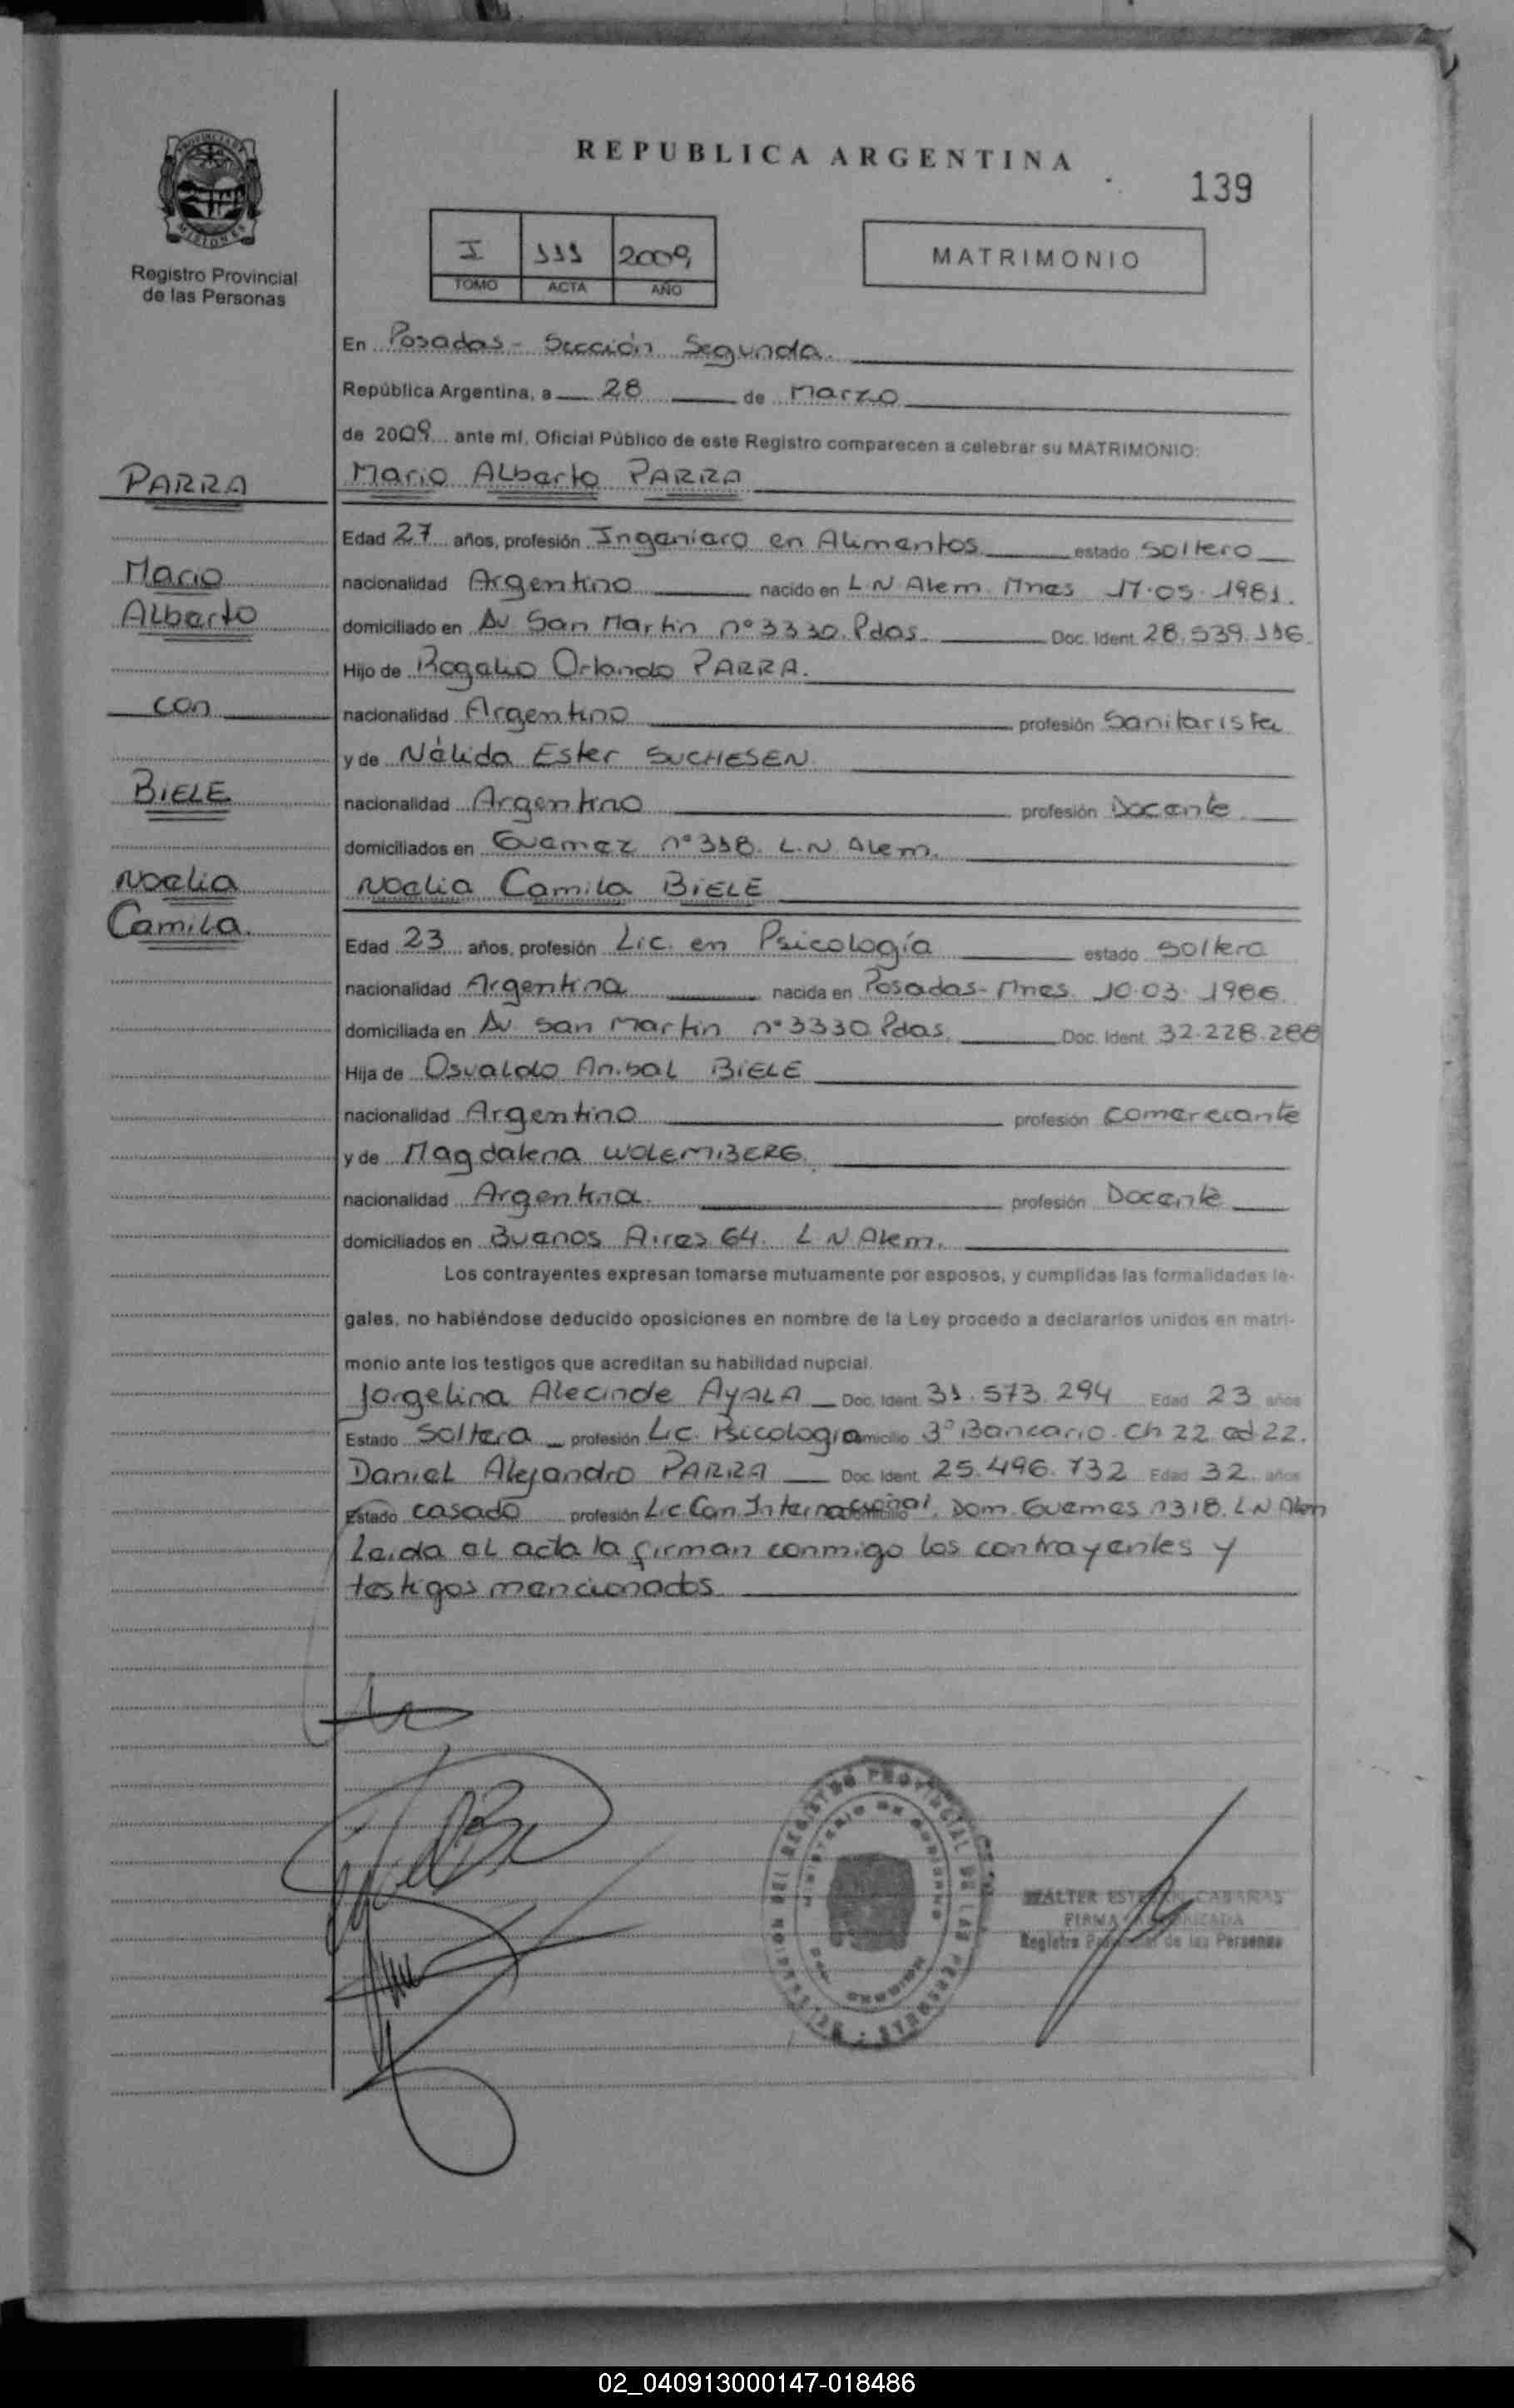 REPUBLICA ARGENTINA
139
PROVINCIA DE
MISIONES
Registro Provincial
de las Personas
I 111 2009
TOMO ACTA AÑO
MATRIMONIO
En Posadas - Sección Segunda.
República Argentina, a 28 de Marzo
de 2009 ante mí, Oficial Público de este Registro comparecen a celebrar su MATRIMONIO:
PARRA
Mario Alberto PARRA
Edad 27 años, profesión Ingeniero en Alimentos estado soltero
Mario
nacionalidad Argentino nacido en L N Alem. Mnes 17.05.1981.
Alberto
domiciliado en Av San Martin nº 3330. Pdas. Doc. Ident. 28.539.116
Hijo de Rogelio Orlando PARRA.
con
nacionalidad Argentino profesión Sanitarista
y de Nélida Ester SUCHESEN
BIELE
nacionalidad Argentino profesión Docente
domiciliados en Guemez nº 318. L.N. Alem.
Noelia
Noelia Camila BIELE
Camila.
Edad 23 años, profesión Lic. en Psicología estado soltera
nacionalidad Argentina nacida en Posadas- Mnes 10.03.1986.
domiciliada en Av San Martin nº 3330 Pdas. Doc. Ident. 32.228.288
Hija de Osvaldo Anibal BIELE
nacionalidad Argentino profesión comerciante
y de Magdalena WOLEMBERG
nacionalidad Argentina. profesión Docente
domiciliados en Buenos Aires 64. L N Alem.
Los contrayentes expresan tomarse mutuamente por esposos, y cumplidas las formalidades le-
gales, no habiéndose deducido oposiciones en nombre de la Ley procedo a declararlos unidos en matri-
monio ante los testigos que acreditan su habilidad nupcial.
Jorgelina Alecinde AYALA Doc. Ident. 31.573.294 Edad 23 años
Estado Soltera profesión Lic. Psicologia domicilio 3º Bancario. Ch 22 ed 22.
Daniel Alejandro PARRA Doc. Ident. 25.496.732 Edad 32 años
Estado casado profesión Lic. Com Internacional. Dom. Guemes n 318. L N Alem
Leida el acta la firman conmigo los contrayentes y
testigos mencionados
REGISTRO PROVINCIAL DE LAS PERSONAS
MINISTERIO DE GOBIERNO
MISIONES
WALTER ESTEBAN CABAÑAS
FIRMA AUTORIZADA
Registro Provincial de las Personas
02_040913000147-018486